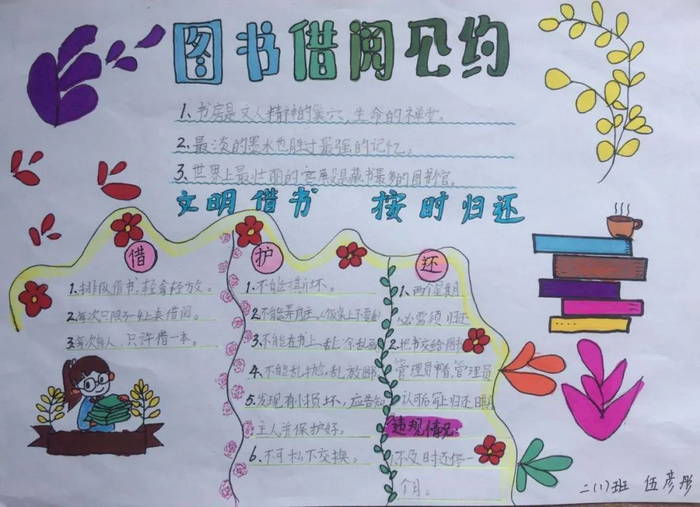 图书借阅公约
1、书店是文人精神的巢穴，生命的禅堂。
2、最淡的墨水也胜过最强的记忆。
3、世界上最壮丽的宫殿是藏书最多的图书馆。
文明借书 按时归还
借
1、排队借书，轻拿轻放。
2、每次只限一人上来借阅。
3、每次每人，只许借一本。
护
1、不能损坏。
2、不能弄脏
3、不能在书上乱
4、不能乱
5、发现有小损坏，应告
主人并保护好。
6、不可私下交换。
还
1、两个星期
必须归还
2、把书交给图书
管理员，管理员
认可后归还
违规情况：
不及时还停一
个月。
二(1)班 伍彦彤